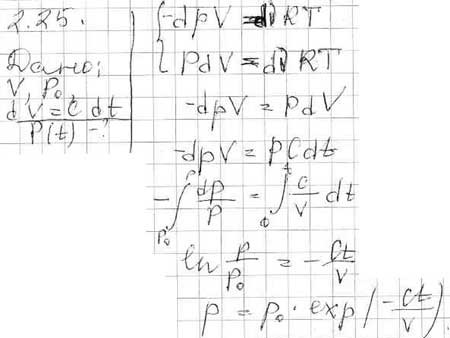 2.25.
Дано:
V, P₀,
dV = C dt
P(t) - ?
{ -dpV = dν RT
{ PdV = dν RT
-dpV = PdV
-dpV = PCdt
-∫_{P₀}^{P} dp/p = ∫_{0}^{t} c/V dt
ln p/p₀ = - Ct/V
p = p₀ · exp(-Ct/V).